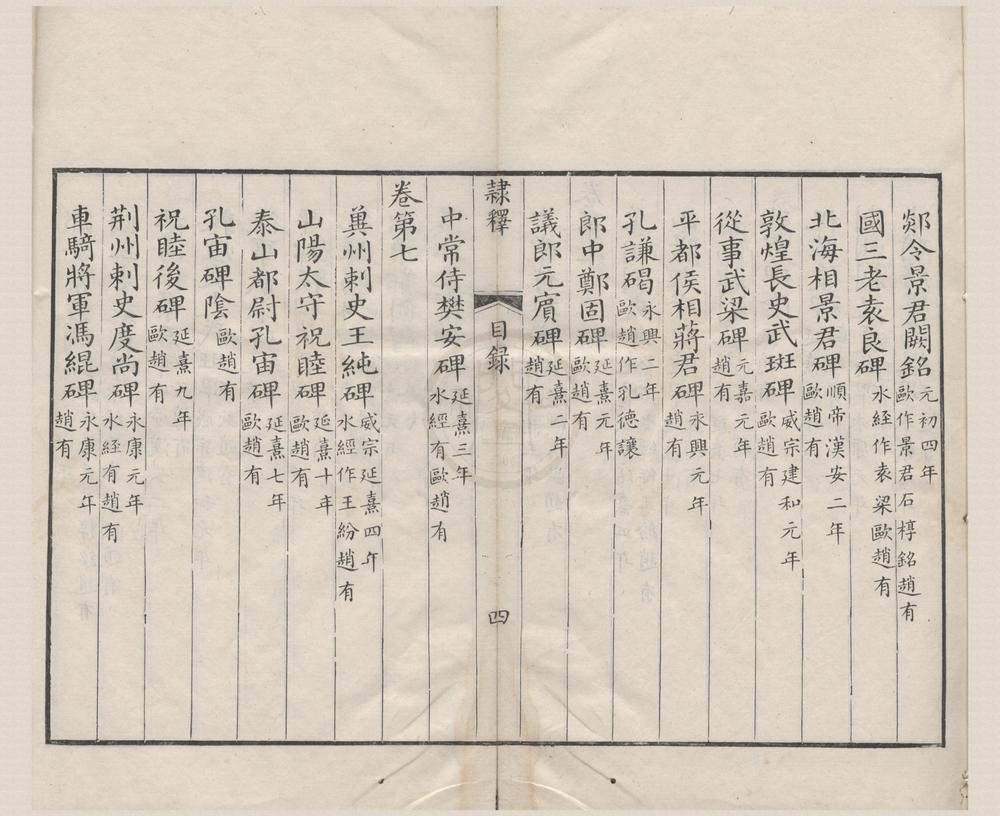 郯令景君闕銘元初四年歐作景君石椁銘趙有
國三老袁良碑水經作袁梁歐趙有
北海相景君碑順帝漢安二年歐趙有
敦煌長史武斑碑威宗建和元年歐趙有
從事武梁碑元嘉元年趙有
平都侯相蔣君碑永興元年趙有
孔謙碣永興二年歐趙作孔德讓
郎中鄭固碑延熹元年歐趙有
議郎元賓碑延熹二年趙有
隸釋 目録 四
中常侍樊安碑延熹三年水經有歐趙有
卷第七
兾州刺史王純碑威宗延熹四年水經作王紛趙有
山陽太守祝睦碑延熹十年歐趙有
泰山都尉孔宙碑延熹七年歐趙有
孔宙碑陰歐趙有
祝睦後碑延熹九年歐趙有
荆州刺史度尚碑永康元年水經有趙有
車騎將軍馮緄碑永康元年趙有